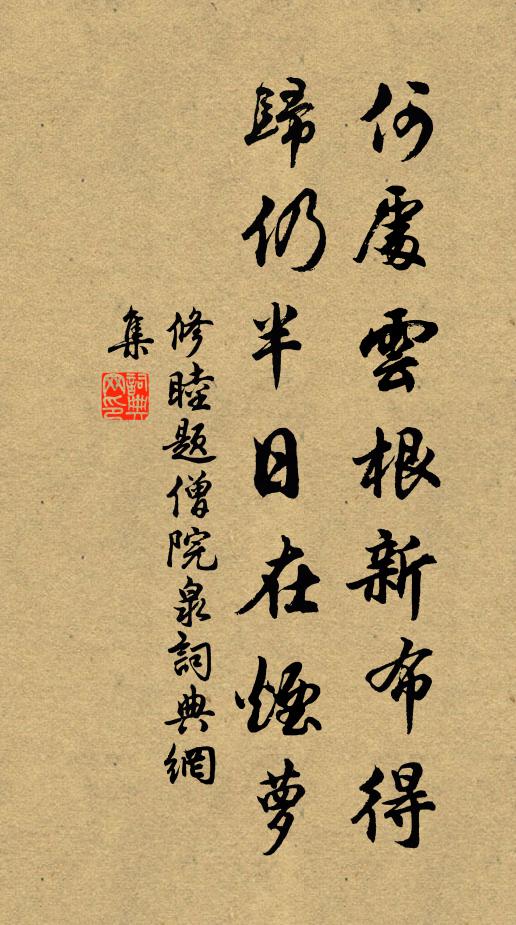 何處雲根新布得
歸仍半日在煙夢
修睦題僧院泉詞典網
集
詞典
网印